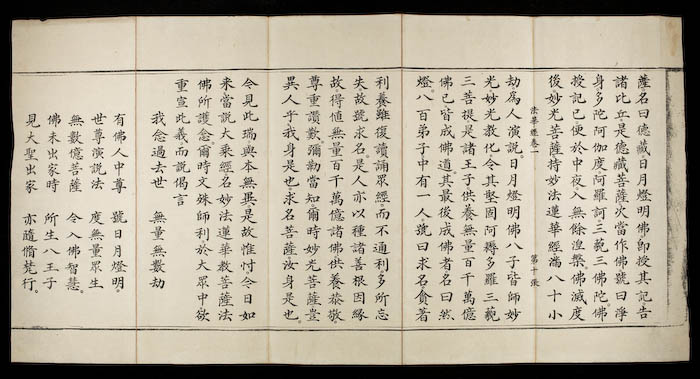 薩名曰德藏日月燈明佛即授其記告
諸比丘是德藏菩薩次當作佛號曰淨
身多陀阿伽度。阿羅訶。三藐三佛陀。佛
授記已便於中夜。入無餘涅槃。佛滅度
後妙光菩薩持妙法蓮華經滿八十小
法華經卷一 第十張
劫爲人演說。日月燈明佛八子皆師妙
光。妙光教化令其堅固阿耨多羅三藐
三菩提。是諸王子供養無量百千萬億
佛已皆成佛道。其最後成佛者。名曰然
燈。八百弟子中有一人。號曰求名。貪著
利養雖復讀誦衆經。而不通利多所忘
失故號求名。是人亦以種諸善根因緣
故得值無量百千萬億諸佛供養恭敬
尊重讚歎。彌勒當知。爾時妙光菩薩豈
異人乎。我身是也。求名菩薩汝身是也。
今見此瑞與本無異。是故惟忖今日如
來當說大乘經名妙法蓮華教菩薩法
佛所護念。爾時文殊師利於大衆中欲
重宣此義而說偈言
我念過去世 無量無數劫
有佛人中尊 號日月燈明。
世尊演說法 度無量衆生
無數億菩薩 令入佛智慧。
佛未出家時 所生八王子
見大聖出家 亦隨修梵行。